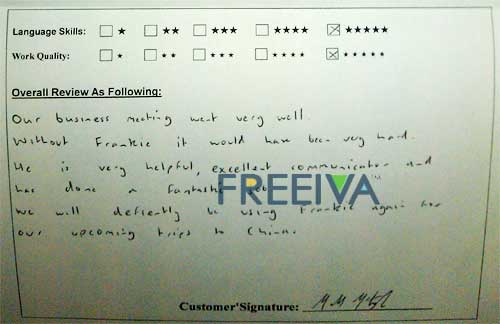 Language Skills: ☐ ★ ☐ ★★ ☐ ★★★ ☐ ★★★★ ☒ ★★★★★
Work Quality: ☐ ★ ☐ ★★ ☐ ★★★ ☐ ★★★★ ☒ ★★★★★
Overall Review As Following:
Our business meeting went very well.
Without Frankie it would have been very hard.
He is very helpful, excellent communicator and
has done a fantastic
FREEIVA
we will defiently be using Frankie again for
our upcoming trips to China.
Customer'Signature: